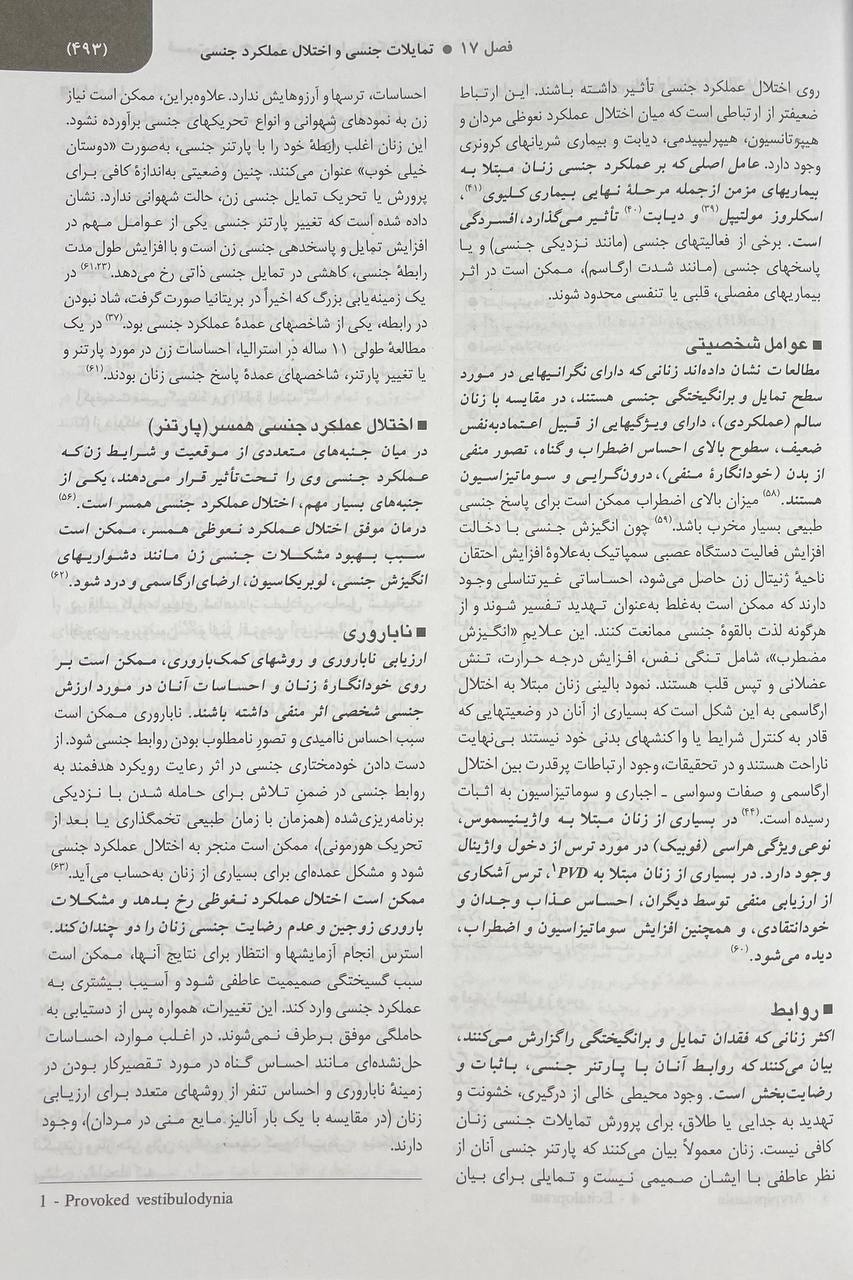 فصل ۱۷ ● تمایلات جنسی و اختلال عملکرد جنسی
(۴۹۳)
روی اختلال عملکرد جنسی تأثیر داشته باشند. این ارتباط
ضعیفتر از ارتباطی است که میان اختلال عملکرد نعوظی مردان و
هیپرتانسیون، هیپرلیپیدمی، دیابت و بیماری شریانهای کرونری
وجود دارد. عامل اصلی‌که بر عملکرد جنسی زنان مبتلا به
بیماریهای مزمن ازجمله مرحلهٔ نهایی بیماری کلیوی(۴۱)،
اسکلروز مولتیپل(۳۹) و دیابت(۴۰) تأثیر می‌گذارد، افسردگی
است. برخی از فعالیتهای جنسی (مانند نزدیکی جنسی) و یا
پاسخهای جنسی (مانند شدت ارگاسم)، ممکن است در اثر
بیماریهای مفصلی، قلبی یا تنفسی محدود شوند.
■ عوامل شخصیتی
مطالعات نشان داده‌اند زنانی‌که دارای نگرانیهایی در مورد
سطح تمایل و برانگیختگی جنسی هستند، در مقایسه با زنان
سالم (عملکردی)، دارای ویژگیهایی از قبیل اعتمادبه‌نفس
ضعیف، سطوح بالای احساس اضطراب و گناه، تصور منفی
از بدن (خودانگارهٔ منفی)، درون‌گرایی و سوماتیزاسیون
هستند.(۵۸) میزان بالای اضطراب ممکن است برای پاسخ جنسی
طبیعی بسیار مخرب باشد.(۵۹) چون انگیزش جنسی با دخالت
افزایش فعالیت دستگاه عصبی سمپاتیک به‌علاوهٔ افزایش احتقان
ناحیهٔ ژنیتال زن حاصل می‌شود، احساساتی غیرتناسلی وجود
دارند که ممکن است به‌غلط به‌عنوان تهدید تفسیر شوند و از
هرگونه لذت بالقوهٔ جنسی ممانعت کنند. این علایمِ «انگیزش
مضطرب»، شامل تنگی نفس، افزایش درجه حرارت، تنش
عضلانی و تپس قلب هستند. نمود بالینی زنان مبتلا به اختلال
ارگاسمی به این شکل است که بسیاری از آنان در وضعیتهایی که
قادر به کنترل شرایط یا واکنشهای بدنی خود نیستند بی‌نهایت
ناراحت هستند و در تحقیقات، وجود ارتباطات پرقدرت بین اختلال
ارگاسمی و صفات وسواسی ـ اجباری و سوماتیزاسیون به اثبات
رسیده است.(۴۴) در بسیاری از زنان مبتلا به واژینیسموس،
نوعی ویژگی هراسی (فوبیک) در مورد ترس از دخول واژینال
وجود دارد. در بسیاری از زنان مبتلا به PVD۱، ترس آشکاری
از ارزیابی منفی توسط دیگران، احساس عذاب وجدان و
خودانتقادی، و همچنین افزایش سوماتیزاسیون و اضطراب،
دیده می‌شود.(۶۰)
■ روابط
اکثر زنانی‌که فقدان تمایل و برانگیختگی را گزارش می‌کنند،
بیان می‌کنند که روابط آنان با پارتنر جنسی، باثبات و
رضایت‌بخش است. وجود محیطی خالی از درگیری، خشونت و
تهدید به جدایی یا طلاق، برای پرورش تمایلات جنسی زنان
کافی نیست. زنان معمولاً بیان می‌کنند که پارتنر جنسی آنان از
نظر عاطفی با ایشان صمیمی نیست و تمایلی برای بیان
احساسات، ترسها و آرزوهایش ندارد. علاوه‌براین، ممکن است نیاز
زن به نمودهای شهوانی و انواع تحریکهای جنسی برآورده نشود.
این زنان اغلب رابطهٔ خود را با پارتنر جنسی، به‌صورت «دوستان
خیلی خوب» عنوان می‌کنند. چنین وضعیتی به‌اندازهٔ کافی برای
پرورش یا تحریک تمایل جنسی زن، حالت شهوانی ندارد. نشان
داده شده است که تغییر پارتنر جنسی یکی از عوامل مهم در
افزایش تمایل و پاسخدهی جنسی زن است و با افزایش طول مدت
رابطهٔ جنسی، کاهشی در تمایل جنسی ذاتی رخ می‌دهد.(۶۱،۲۳) در
یک زمینه‌یابی بزرگ که اخیراً در بریتانیا صورت گرفت، شاد نبودن
در رابطه، یکی از شاخصهای عمدهٔ عملکرد جنسی بود.(۳۷) در یک
مطالعهٔ طولی ۱۱ ساله در استرالیا، احساسات زن در مورد پارتنر و
یا تغییر پارتنر، شاخصهای عمدهٔ پاسخ جنسی زنان بودند.(۶۱)
■ اختلال عملکرد جنسی همسر (پارتنر)
در میان جنبه‌های متعددی از موقعیت و شرایط زن‌که
عملکرد جنسی وی را تحت‌تأثیر قرار می‌دهند، یکی از
جنبه‌های بسیار مهم، اختلال عملکرد جنسی همسر است.(۵۶)
درمان موفق اختلال عملکرد نعوظی همسر، ممکن است
سبب بهبود مشکلات جنسی زن مانند دشواریهای
انگیزش جنسی، لوبریکاسیون، ارضای ارگاسمی و درد شود.(۶۲)
■ ناباروری
ارزیابی ناباروری و روشهای کمک‌باروری، ممکن است بر
روی خودانگارهٔ زنان و احساسات آنان در مورد ارزش
جنسی شخصی اثر منفی داشته باشند. ناباروری ممکن است
سبب احساس ناامیدی و تصورِ نامطلوب بودن روابط جنسی شود. از
دست دادن خودمختاری جنسی در اثر رعایت رویکرد هدفمند به
روابط جنسی در ضمنِ تلاش برای حامله شدن با نزدیکی
برنامه‌ریزی‌شده (همزمان با زمان طبیعی تخمگذاری یا بعد از
تحریک هورمونی)، ممکن است منجر به اختلال عملکرد جنسی
شود و مشکل عمده‌ای برای بسیاری از زنان به‌حساب می‌آید.(۶۳)
ممکن است اختلال عملکرد نعوظی رخ بدهد و مشکلات
باروری زوجین و عدم رضایت جنسی زنان را دو چندان‌کند.
استرس انجام آزمایشها و انتظار برای نتایج آنها، ممکن است
سبب گسیختگی صمیمیت عاطفی شود و آسیب بیشتری به
عملکرد جنسی وارد کند. این تغییرات، همواره پس از دستیابی به
حاملگی موفق برطرف نمی‌شوند. در اغلب موارد، احساسات
حل‌نشده‌ای مانند احساس گناه در مورد تقصیرکار بودن در
زمینهٔ ناباروری و احساس تنفر از روشهای متعدد برای ارزیابی
زنان (در مقایسه با یک بار آنالیز مایع منی در مردان)، وجود
دارند.
1 - Provoked vestibulodynia